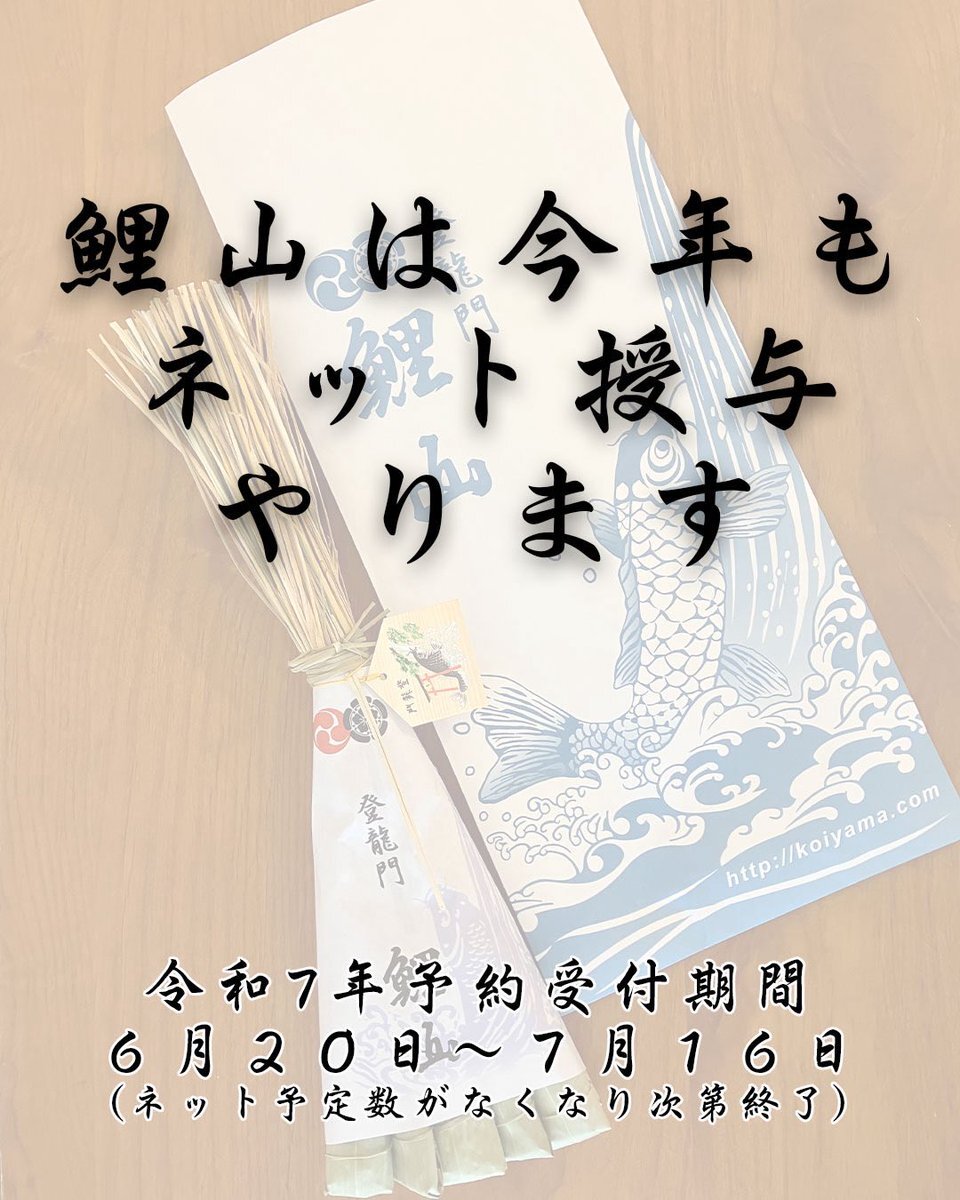 鯉山は今年も
ネット授与
やります
登龍門
鯉山
登龍門
登龍門
鯉山
http://koiyama.com
令和7年予約受付期間
6月20日～7月16日
(ネット予定数がなくなり次第終了)